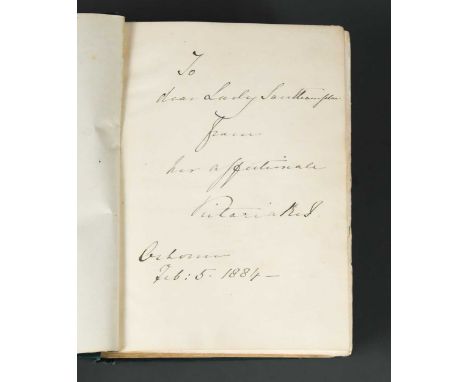 To
dear Lady Southampton
from
her affectionate
Victoria R&I
Osborne
Feb: 5. 1884 —